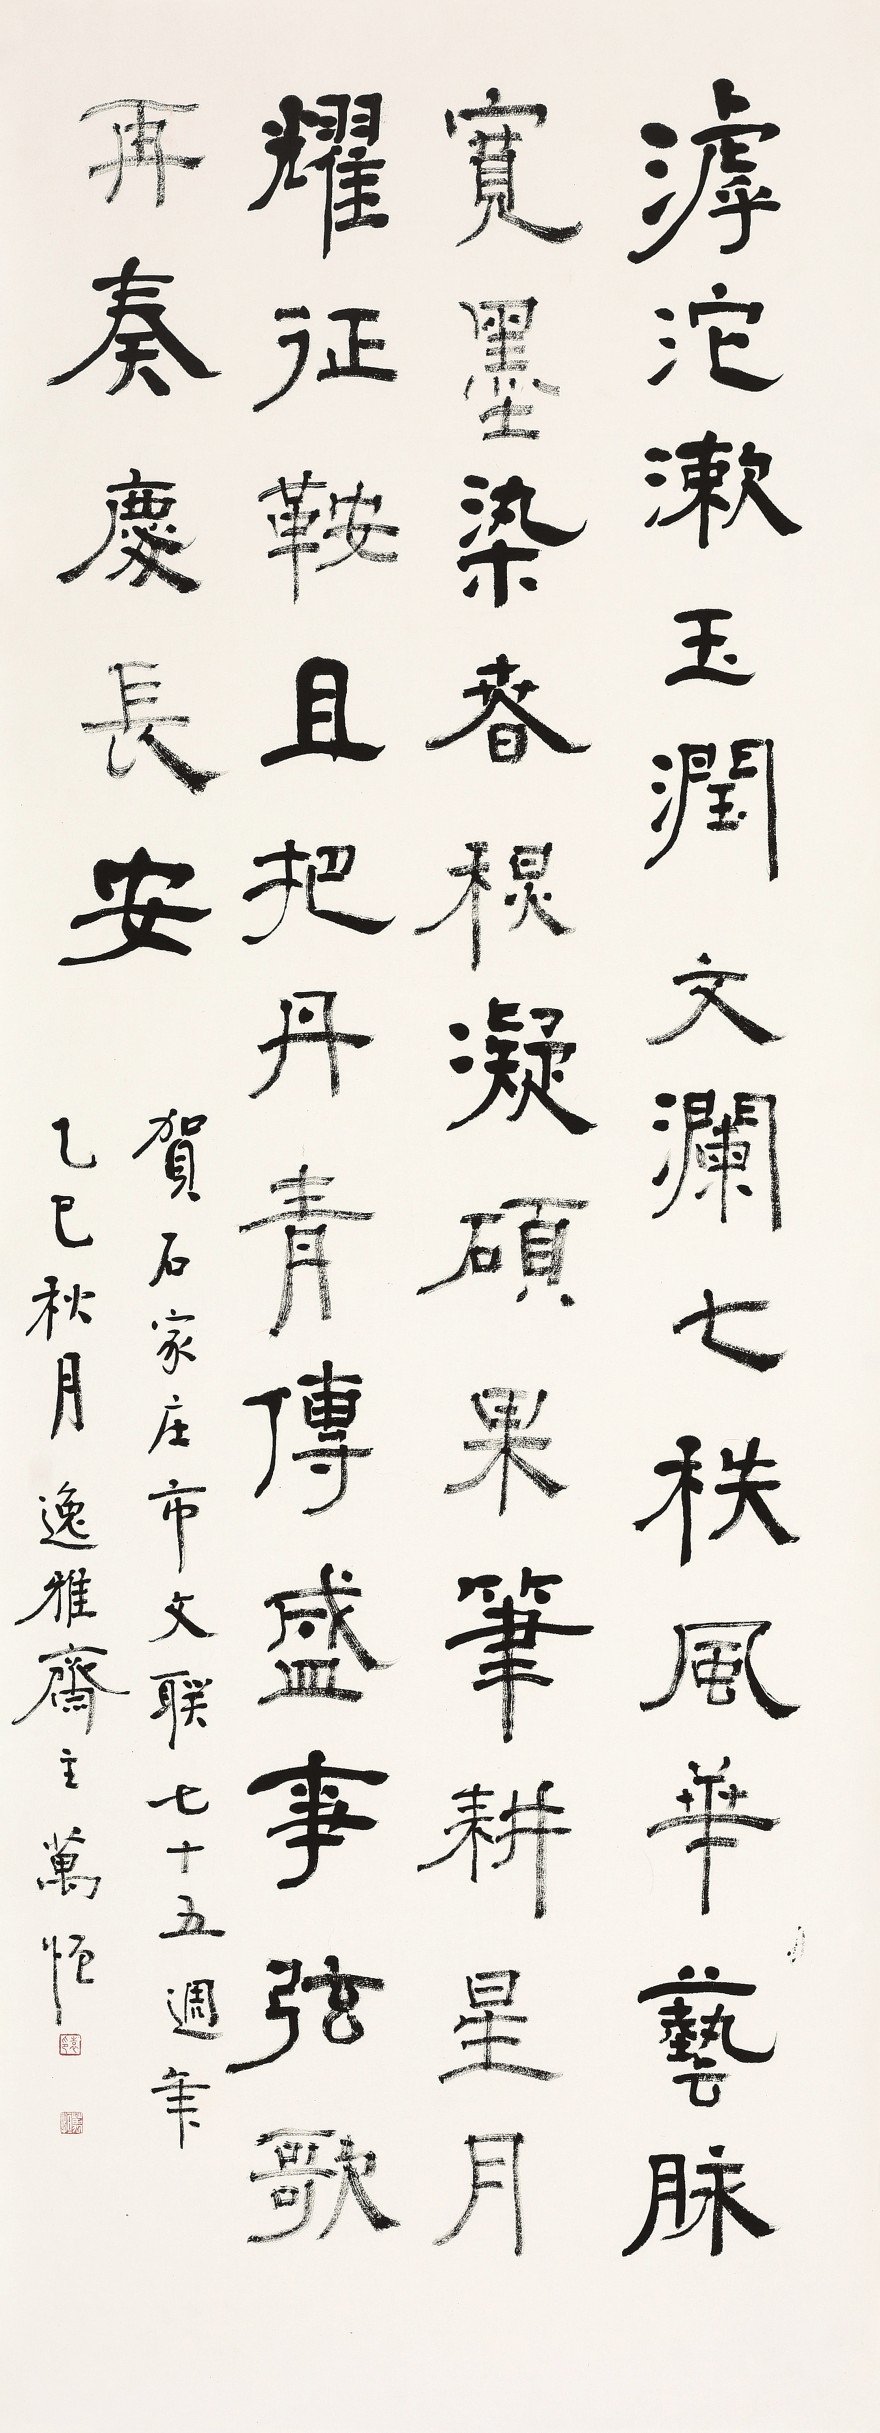 滹沱漱玉潤文瀾七秩風華藝脉
寬墨染春根凝碩果筆耕星月
耀征鞍且把丹青傳盛事弦歌
再奏慶長安
賀石家庄市文联七十五週年
乙巳秋月逸雅齋主萬恒